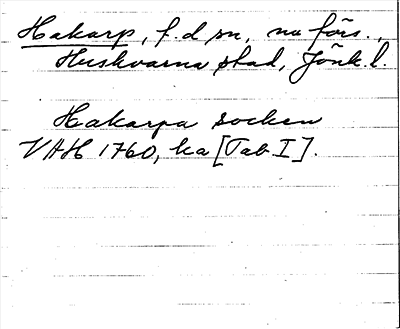 Hakarp, f.d sn, nu förs.,
Huskvarna stad, Jönk.l.
Hakarpa socken
VAH 1760, ka [Tab I].